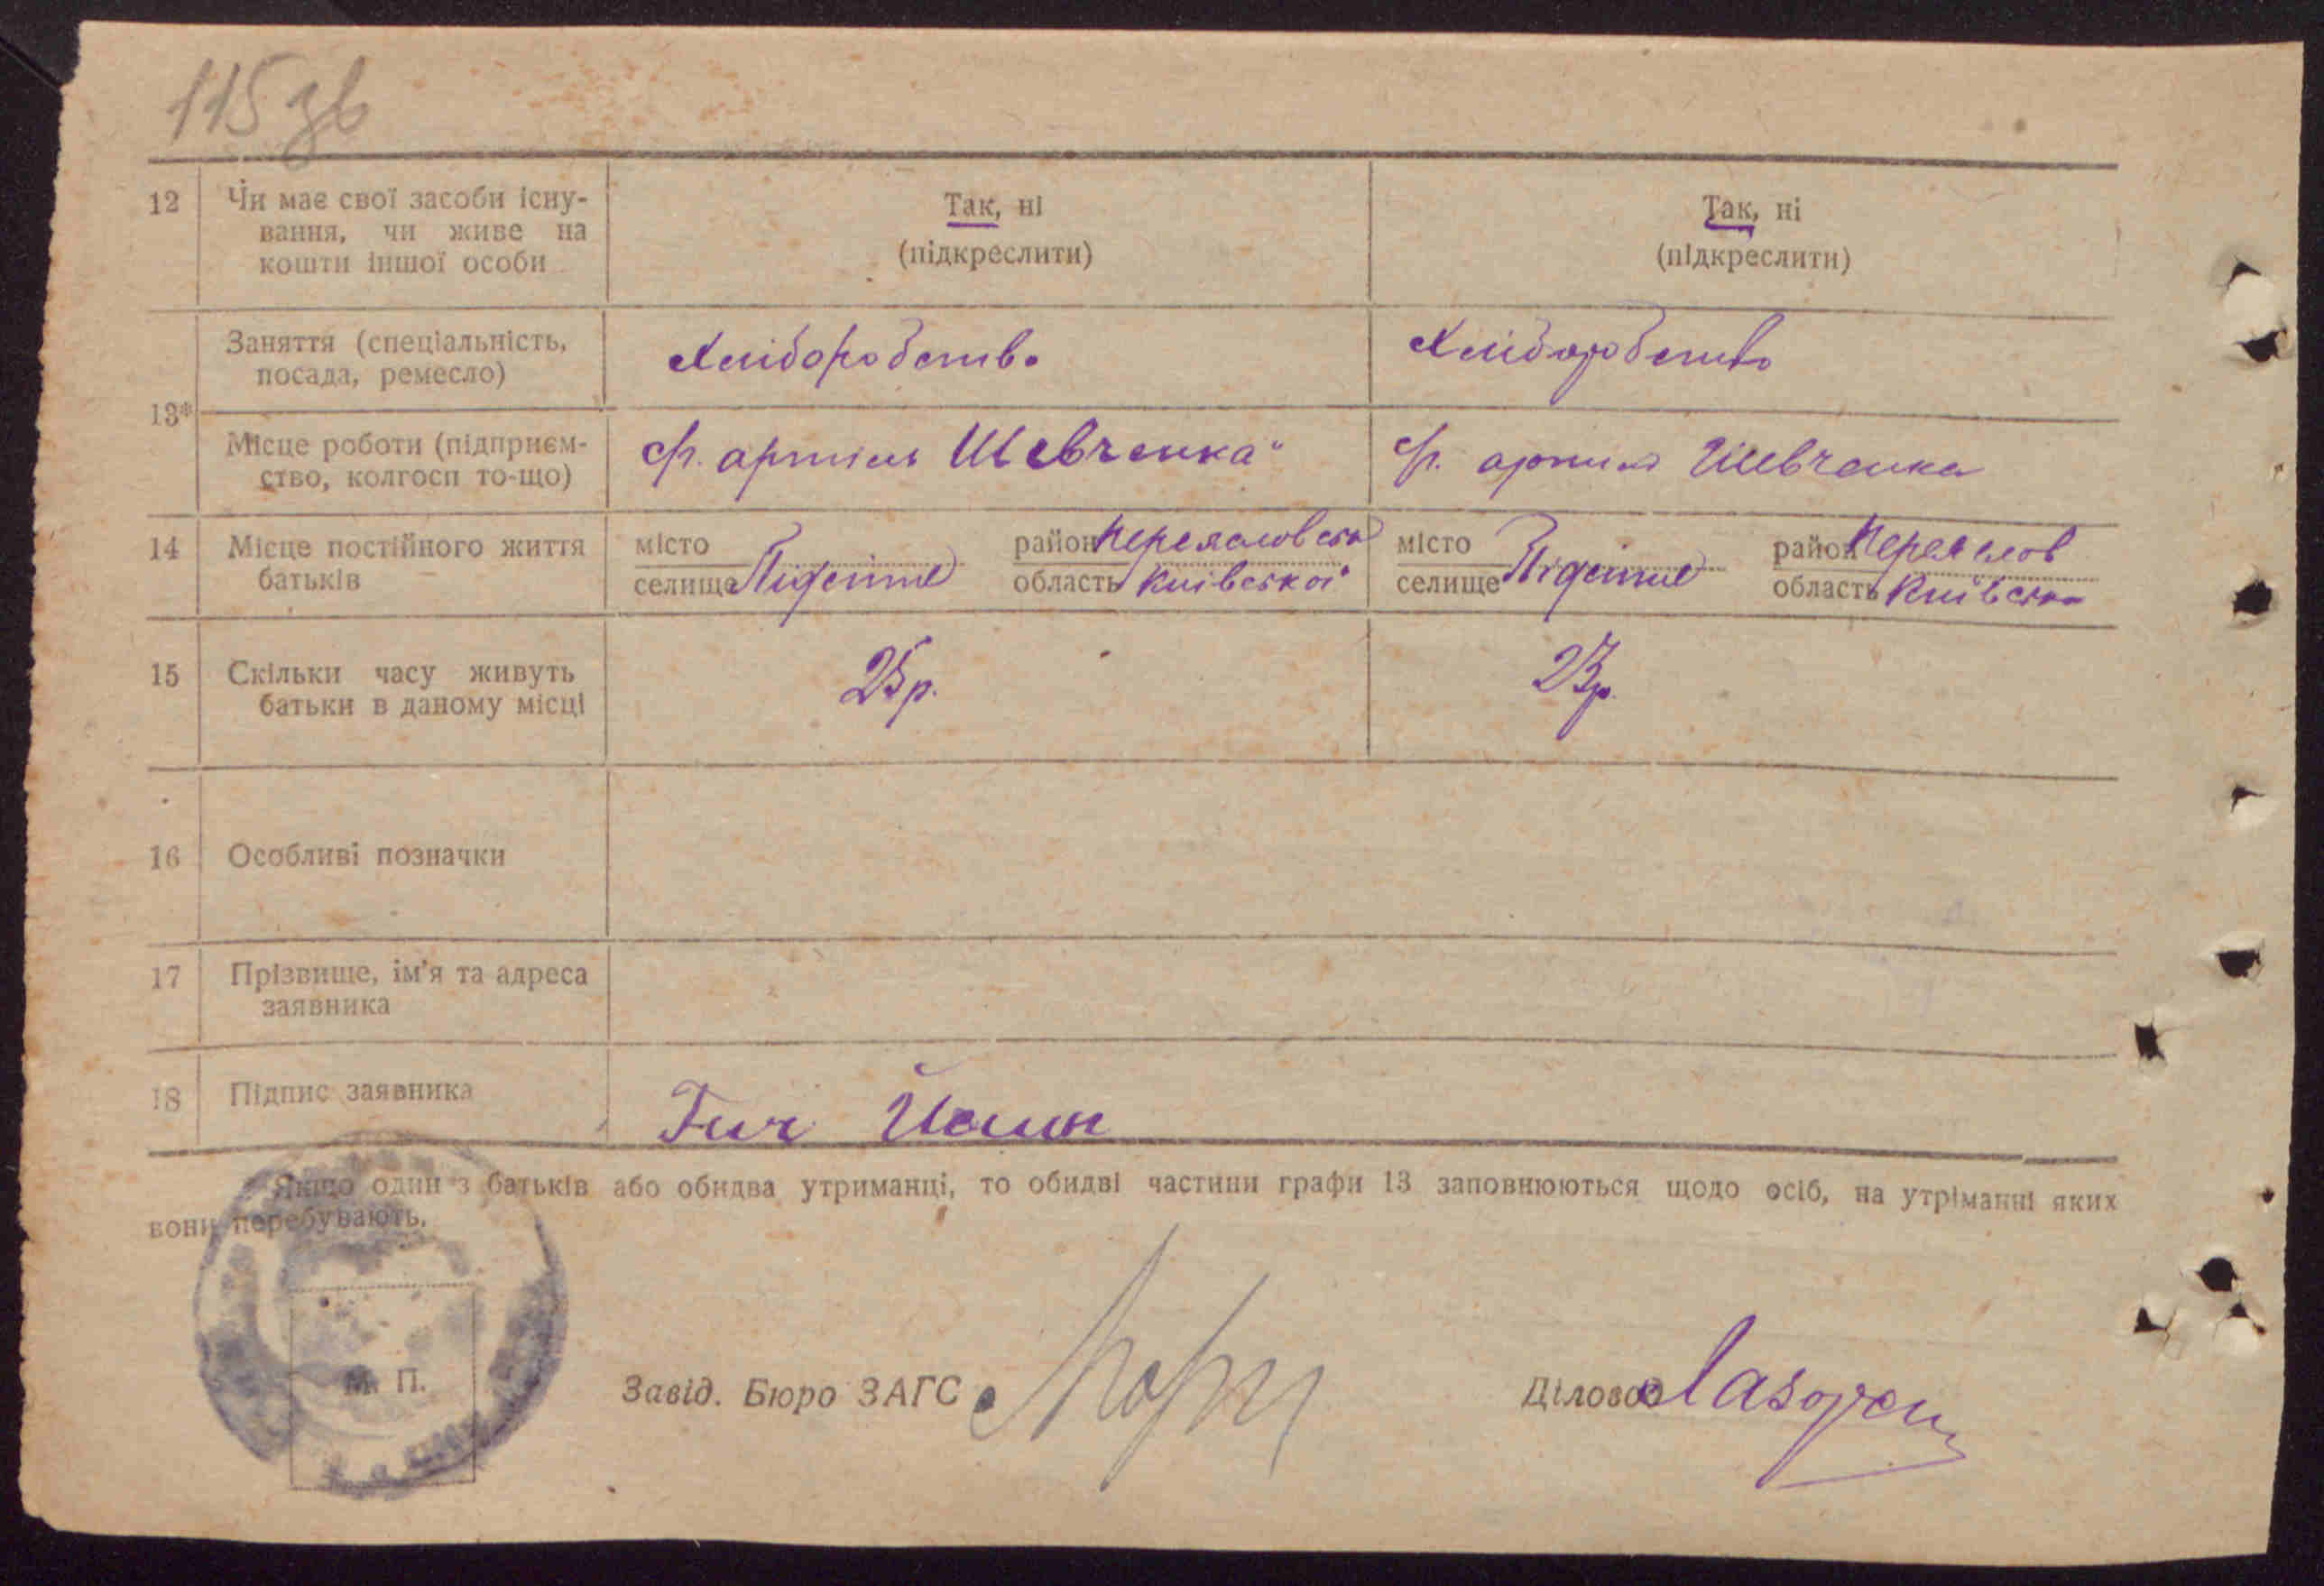 115 зв
12 Чи має свої засоби існу- Так, ні Так, ні
вання, чи живе на (підкреслити) (підкреслити)
кошти іншої особи
13* Заняття (спеціальність, Хліборобство Хліборобство
посада, ремесло)
Місце роботи (підприєм- с/г. артіль Шевченка" с/г. артіль Шевченка
ство, колгосп то-що)
14 Місце постійного життя місто район Переясловськ місто район Переяслов
батьків селище область Київської селище область Київська
15 Скільки часу живуть 23р. 23р.
батьки в даному місці
16 Особливі позначки
17 Прізвище, ім'я та адреса
заявника
18 Підпис заявника Гич
* Якщо один з батьків або обидва утриманці, то обидві частини графи 13 заповнюються щодо осіб, на утріманні яких
вони перебувають.
М. П.
Завід. Бюро ЗАГС Діловод